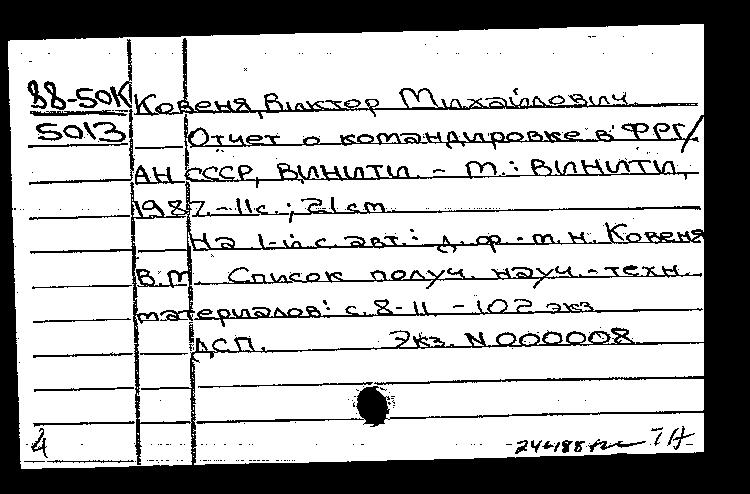 88-50К
5013
Ковеня, Виктор Михайлович.
Отчет о командировке в ФРГ/
АН СССР, ВИНИТИ. - М.: ВИНИТИ,
1987. - 11с.; 21 cm.
На 1-й с. авт.: д. ф.-м. н. Ковеня
В.М. Список получ. науч.-техн.
материалов: с. 8-11. - 102 экз.
ДСП. Экз. N 000008